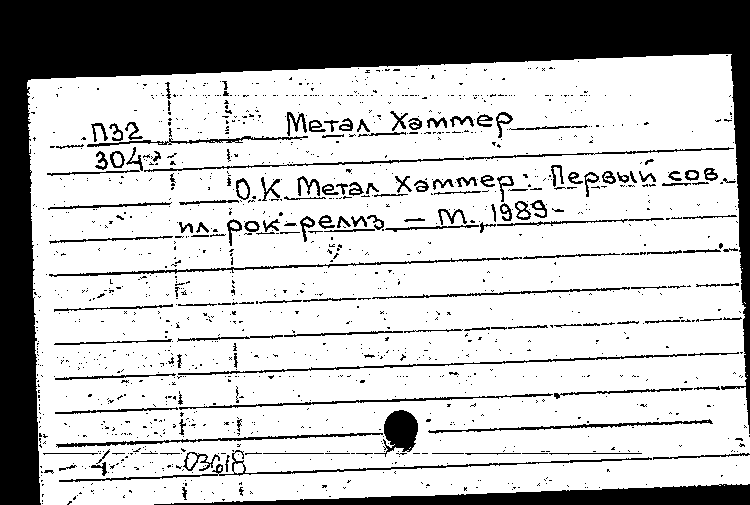 П32 Метал Хаммер
304
О.К. Метал Хаммер: Первый сов.
ил. рок-релиз. – М., 1989-
4 03618